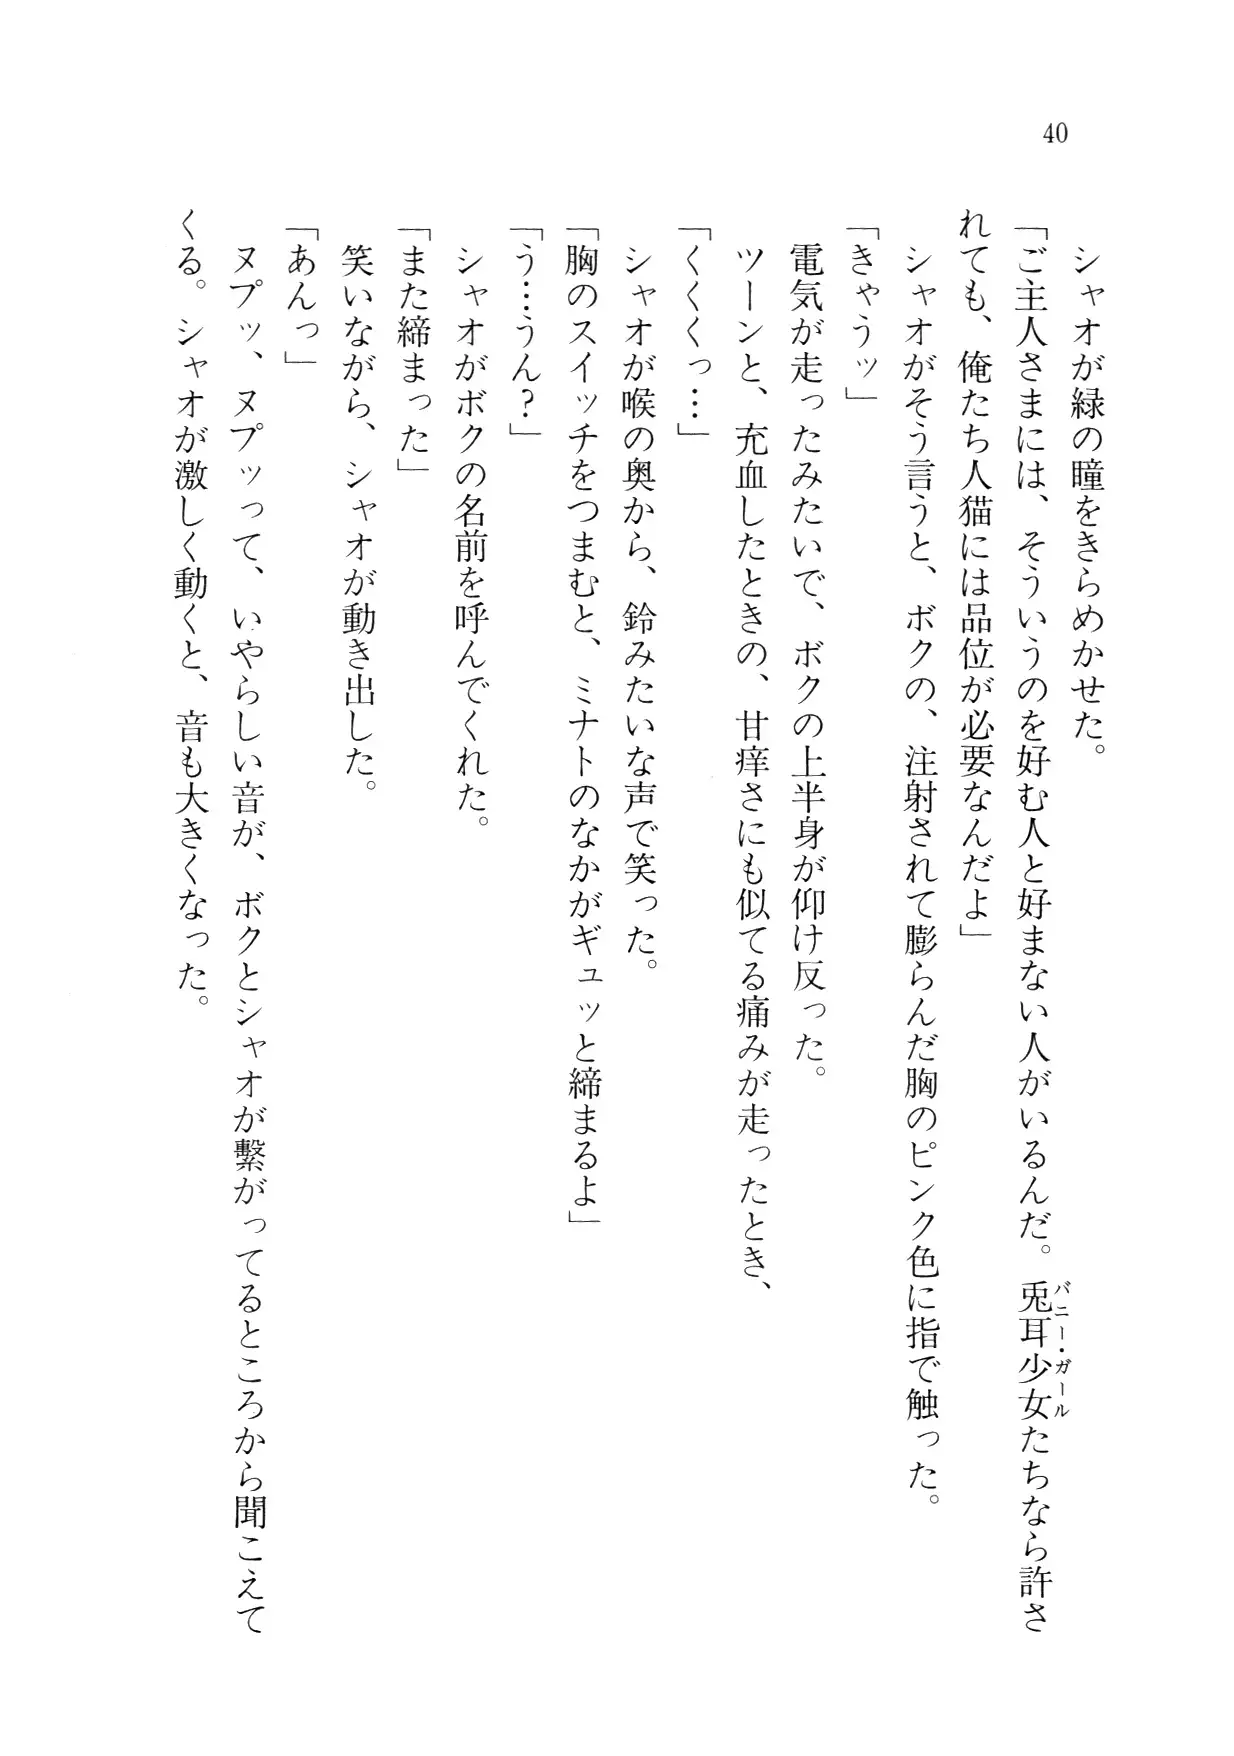 40
シャオが緑の瞳をきらめかせた。
「ご主人さまには、そういうのを好む人と好まない人がいるんだ。兎耳少女たちなら許さ
バニー・ガール
れても、俺たち人猫には品位が必要なんだよ」
シャオがそう言うと、ボクの、注射されて膨らんだ胸のピンク色に指で触った。
「きゃうッ」
電気が走ったみたいで、ボクの上半身が仰け反った。
ツーンと、充血したときの、甘痒さにも似てる痛みが走ったとき、
「くくくっ…」
シャオが喉の奥から、鈴みたいな声で笑った。
「胸のスイッチをつまむと、ミナトのなかがギュッと締まるよ」
「う…うん？」
シャオがボクの名前を呼んでくれた。
「また締まった」
笑いながら、シャオが動き出した。
「あんっ」
ヌプッ、ヌプッって、いやらしい音が、ボクとシャオが繫がってるところから聞こえて
くる。シャオが激しく動くと、音も大きくなった。